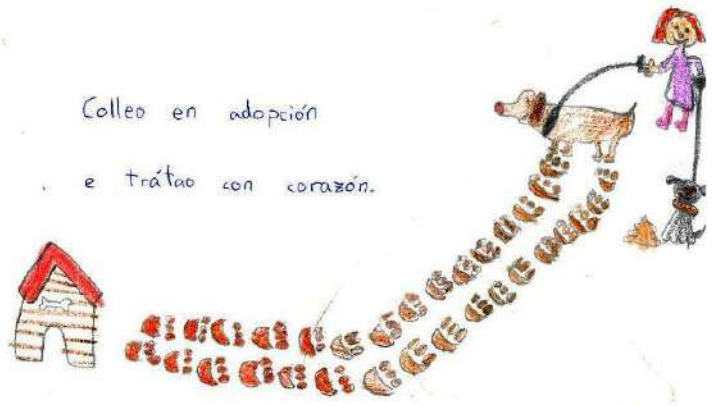 Colleo en adopción
e trátao con corazón.